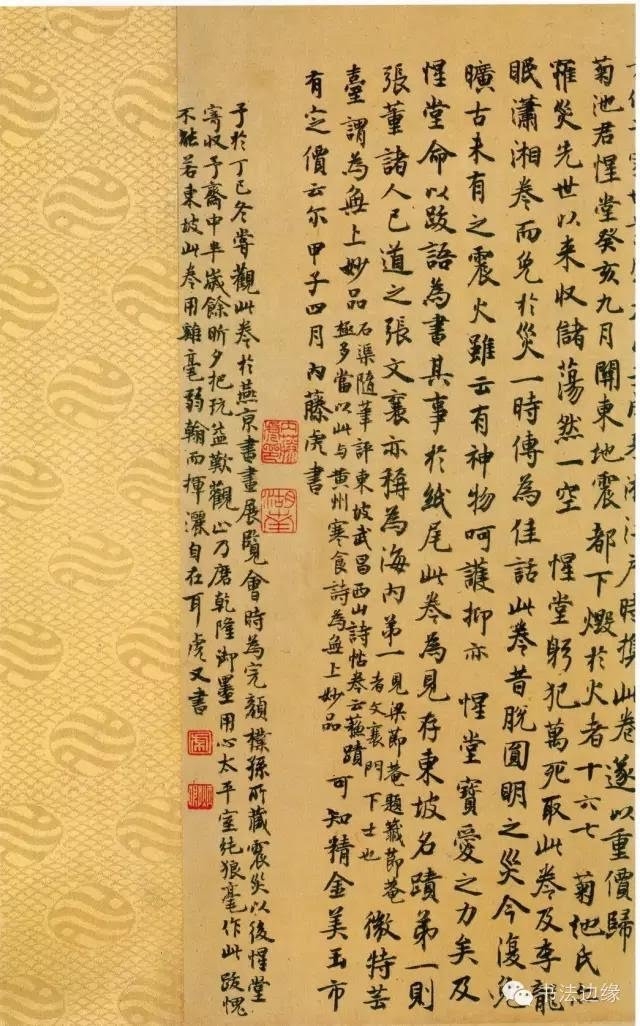 江户時携此卷遂以重價歸
菊池君惺堂癸亥九月關東地震都下燬於火者十六七 菊池氏亦
罹災先世以来収儲蕩然一空 惺堂躬犯萬死取此卷及李龍
眠瀟湘卷而免於災一時傳為佳話此卷昔脫圓明之災今復免
曠古未有之震火雖云有神物呵護抑亦 惺堂寶愛之力矣及
惺堂命以跋語為書其事於紙尾此卷為見存東坡名蹟第一則
張董諸人已道之張文襄亦稱為海内第一 見梁節菴題籤節菴者文襄門下士也 微特芸
臺謂為無上妙品 石渠隨筆評東坡武昌西山詩帖卷云蘇蹟極多當以此与黄州寒食詩為無上妙品 可知精金美玉市
有定價云尔 甲子四月内藤虎書
予於丁巳冬嘗觀此卷於燕京書畫展覧會時為完顏樸孫所藏震災以後惺堂
寄収予齋中半歲餘昕夕把玩益歎觀止乃磨乾隆御墨用心太平室純狼毫作此跋愧
不能若東坡此卷用雞毫弱翰而揮灑自在耳虎又書
书法边缘